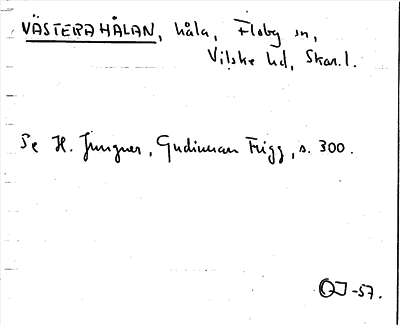 VÄSTERAHÅLAN, håla, Floby sn,
Vilske hd, Skar. l.
Se H. Jungner, Gudinnan Frigg, s. 300.
OJ -57.